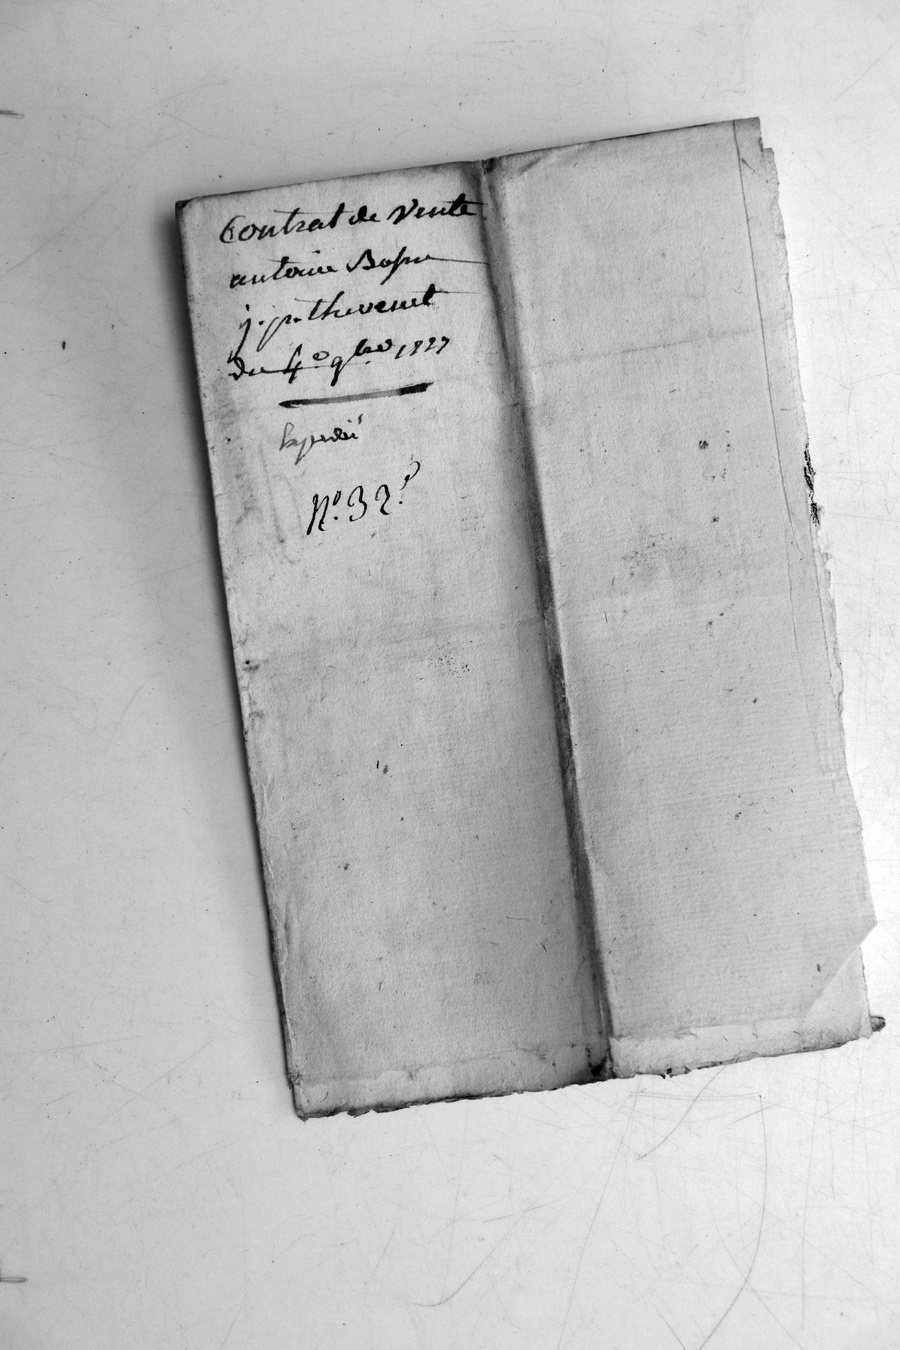 Contrat de Vente
antoine
j. p. thevenet
du 4e 9bre 1827
Expedié
N.° 32.